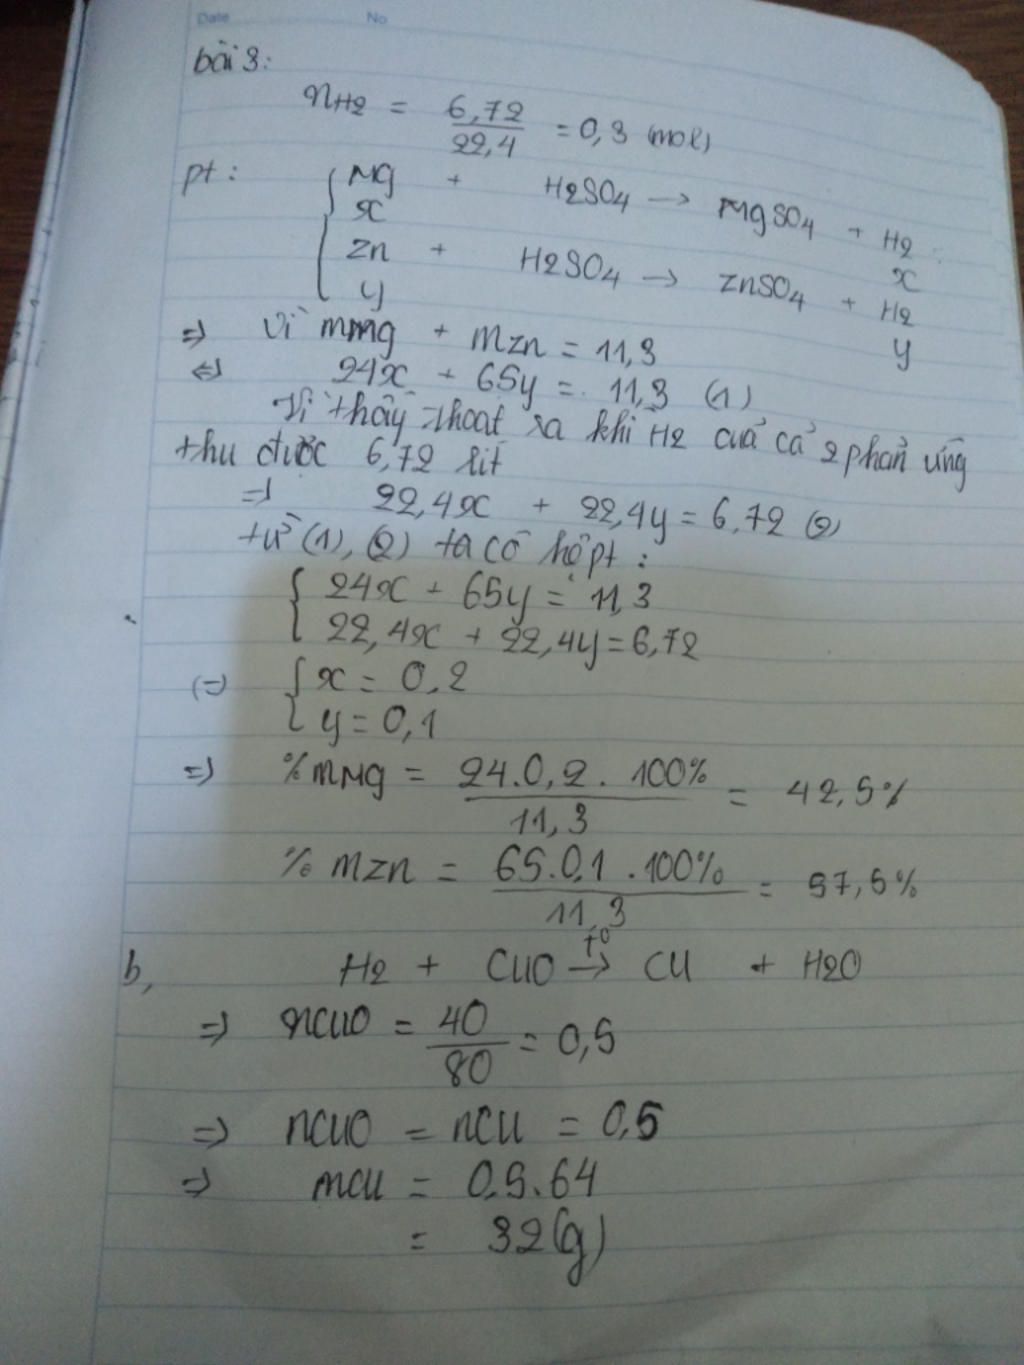 Date No
bài 3:
nH2 = 6,72 / 22,4 = 0,3 (mol)
pt: Mg + H2SO4 → MgSO4 + H2
x x
Zn + H2SO4 → ZnSO4 + H2
y y
=> Vì mMg + mZn = 11,3
<=> 24x + 65y = 11,3 (1)
Vì thấy thoát ra khí H2 cuả cả 2 phản ứng
thu được 6,72 lít
=> 22,4x + 22,4y = 6,72 (2)
từ (1), (2) ta có hệ pt:
{ 24x + 65y = 11,3
22,4x + 22,4y = 6,72
(=) { x = 0,2
y = 0,1
=> % mMg = 24.0,2.100% / 11,3 = 42,5%
% mZn = 65.0,1.100% / 11,3 = 57,5%
b, H2 + CuO t° → Cu + H2O
=> nCuO = 40 / 80 = 0,5
=> nCuO = nCu = 0,5
=> mCu = 0,5.64
= 32(g)